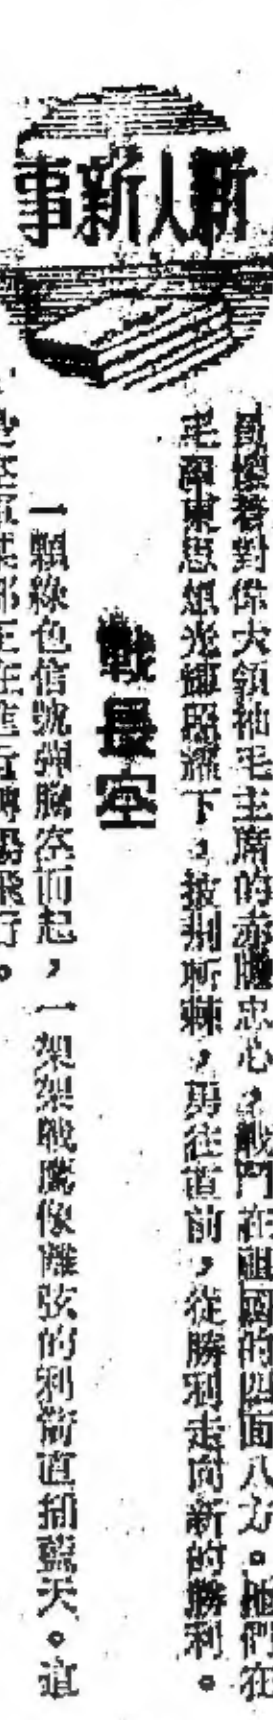 新人新事
懷着對偉大領袖毛主席的赤膽忠心，戰鬥在祖國的四面八方。他們在
毛澤東思想光輝照耀下，披荆斬棘，勇往直前，從勝利走向新的勝利。
戰長空
一顆綠色信號彈騰空而起，一架架戰鷹像離弦的利箭直插藍天。這